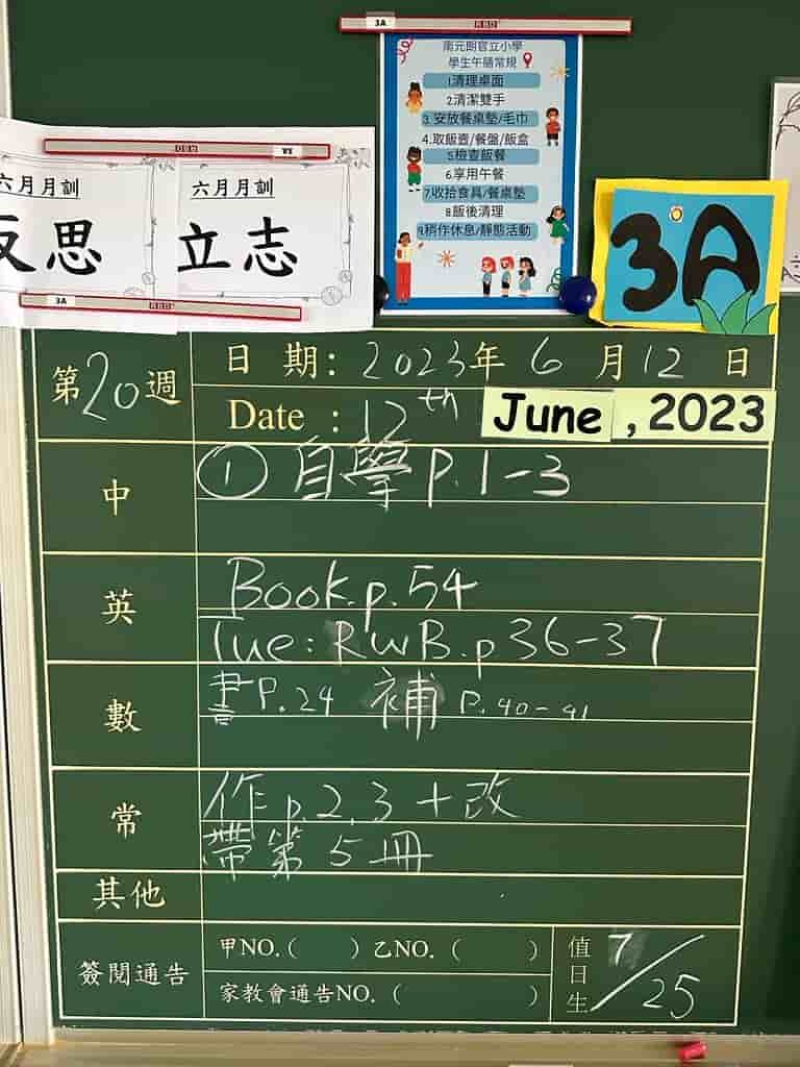 3A
南元朗官立小學
學生午膳常規
1.清理桌面
2.清潔雙手
3.安放餐桌墊/毛巾
4.取飯壺/餐盤/飯盒
5.檢查飯餐
6.享用午餐
7.收拾食具/餐桌墊
8.飯後清理
9.稍作休息/靜態活動
六月月訓
反思
六月月訓
立志
3A
3A
第20週
日 期: 2023年 6 月12 日
Date : 12th June , 2023
中
① 自學 P.1-3
英
Book.p.54
Tue: RWB.p 36-37
數
書P.24 補 P.40-41
常
作 p.2,3 + 改
帶第 5 冊
其他
簽閱通告
甲NO. ( ) 乙NO. ( )
家教會通告NO. ( )
值日生
7/25